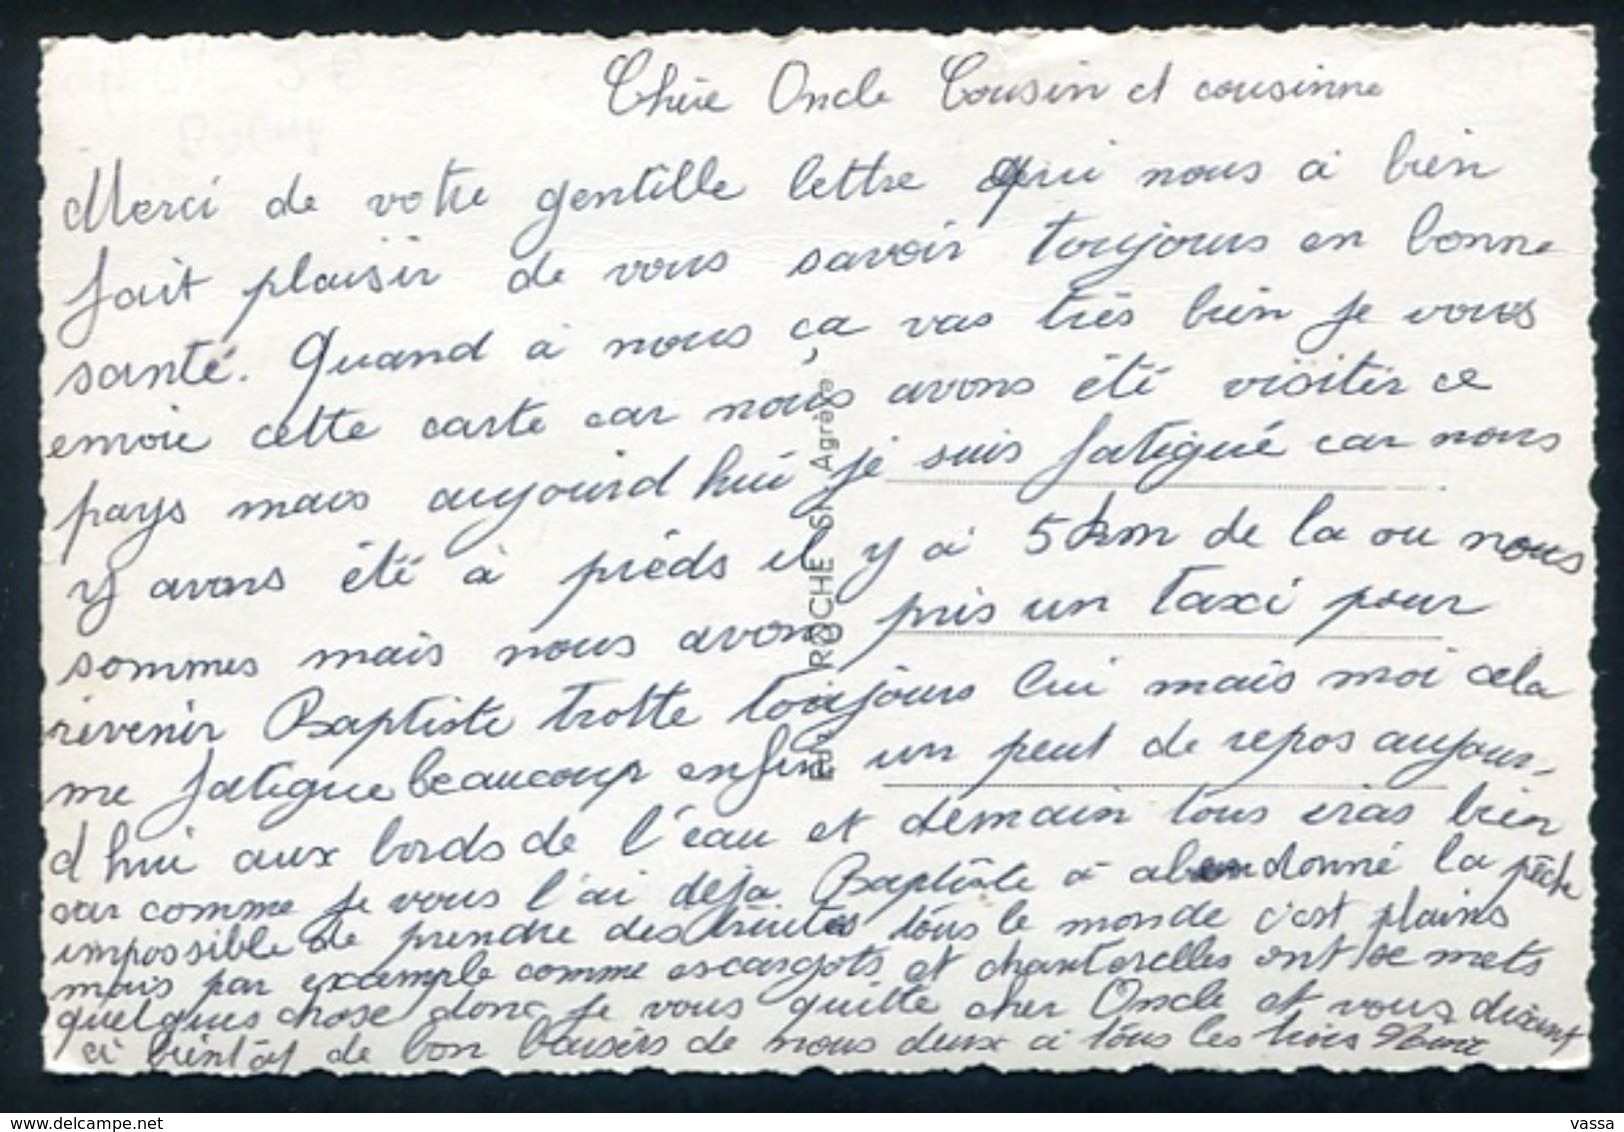 Chère Oncle Cousin et cousinne
Merci de votre gentille lettre qui nous à bien
fait plaisir de vous savoir toujours en bonne
santé. Quand à nous ça vas très bien je vous
emvoie cette carte car nous avons été visiter ce
pays mais aujourd hui je suis fatigué car nous
y avons été à pieds il y a 5 km de la ou nous
sommes mais nous avons pris un taxi pour
revenir Baptiste trotte toujours lui mais moi cela
me fatigue beaucoup enfin un peut de repos aujour-
d hui aux bords de l'eau et demain tous eras bien
car comme je vous l'ai deja Baptiste à abendonné la pêche
impossible de prendre des truites tous le monde c'est plains
mais par exemple comme escargots et chanterelles ont se mets
quelques chose donc je vous quitte cher Oncle et vous disant
à bientôt de bon baisers de nous deux à tous les trois
Edit. ROCHE St. Agrève
vassa
www.delcampe.net